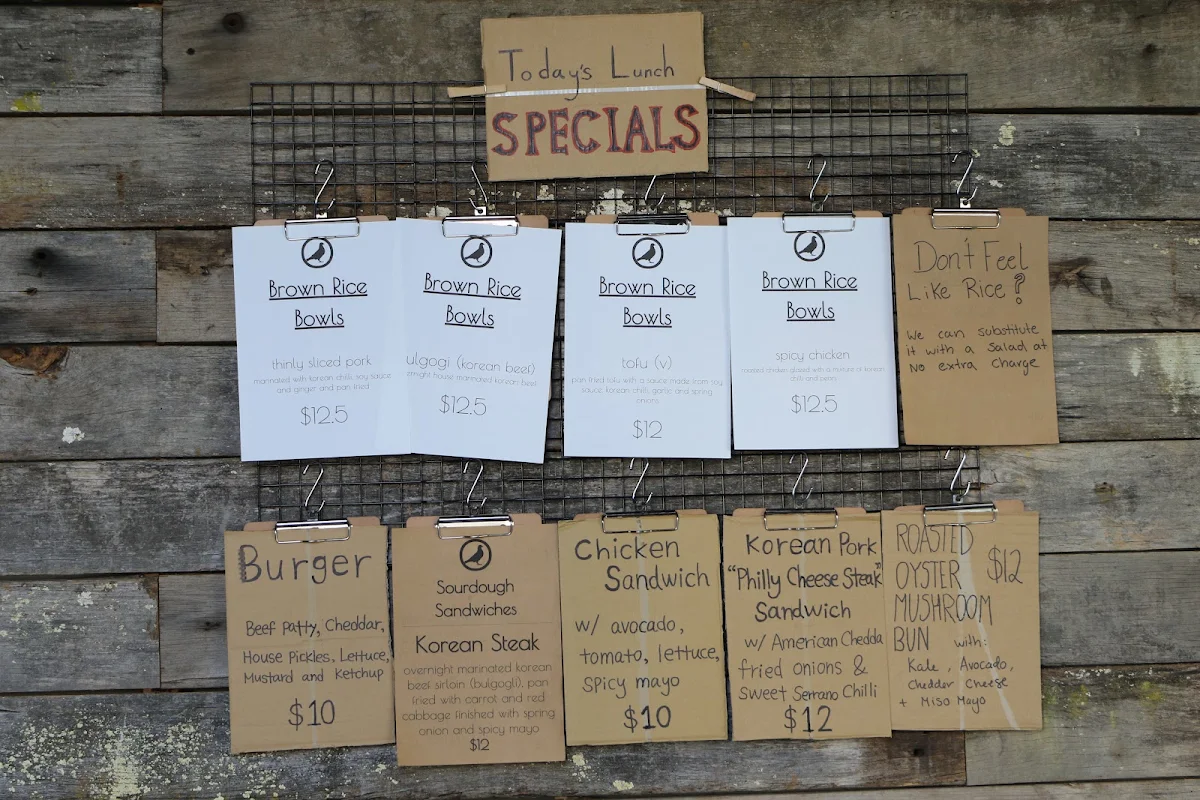 Today's Lunch
SPECIALS
Brown Rice
Bowls
thinly sliced pork
marinated with korean chili, soy sauce
and ginger and pan fried
$12.5
Brown Rice
Bowls
ulgogi (korean beef)
ernight house marinated korean beef
$12.5
Brown Rice
Bowls
tofu (v)
pan fried tofu with a sauce made from soy
sauce, korean chili, garlic and spring
onions
$12
Brown Rice
Bowls
spicy chicken
roasted chicken glazed with a mixture of korean
chilli and
$12.5
Don't Feel
Like Rice?
We can substitute
it with a Salad at
No extra charge
Burger
Beef Patty, Cheddar,
House Pickles, Lettuce,
Mustard and Ketchup
$10
Sourdough
Sandwiches
Korean Steak
overnight marinated korean
beef sirloin (bulgogi), pan
fried with carrot and red
cabbage finished with spring
onion and spicy mayo
$12
Chicken
Sandwich
w/ avocado,
tomato, lettuce,
spicy mayo
$10
Korean Pork
"Philly Cheese Steak"
Sandwich
w/ American Chedda
fried onions &
Sweet Serrano Chilli
$12
ROASTED
OYSTER $12
MUSHROOM
BUN with:
Kale, Avocado,
Cheddar Cheese
+ Miso Mayo